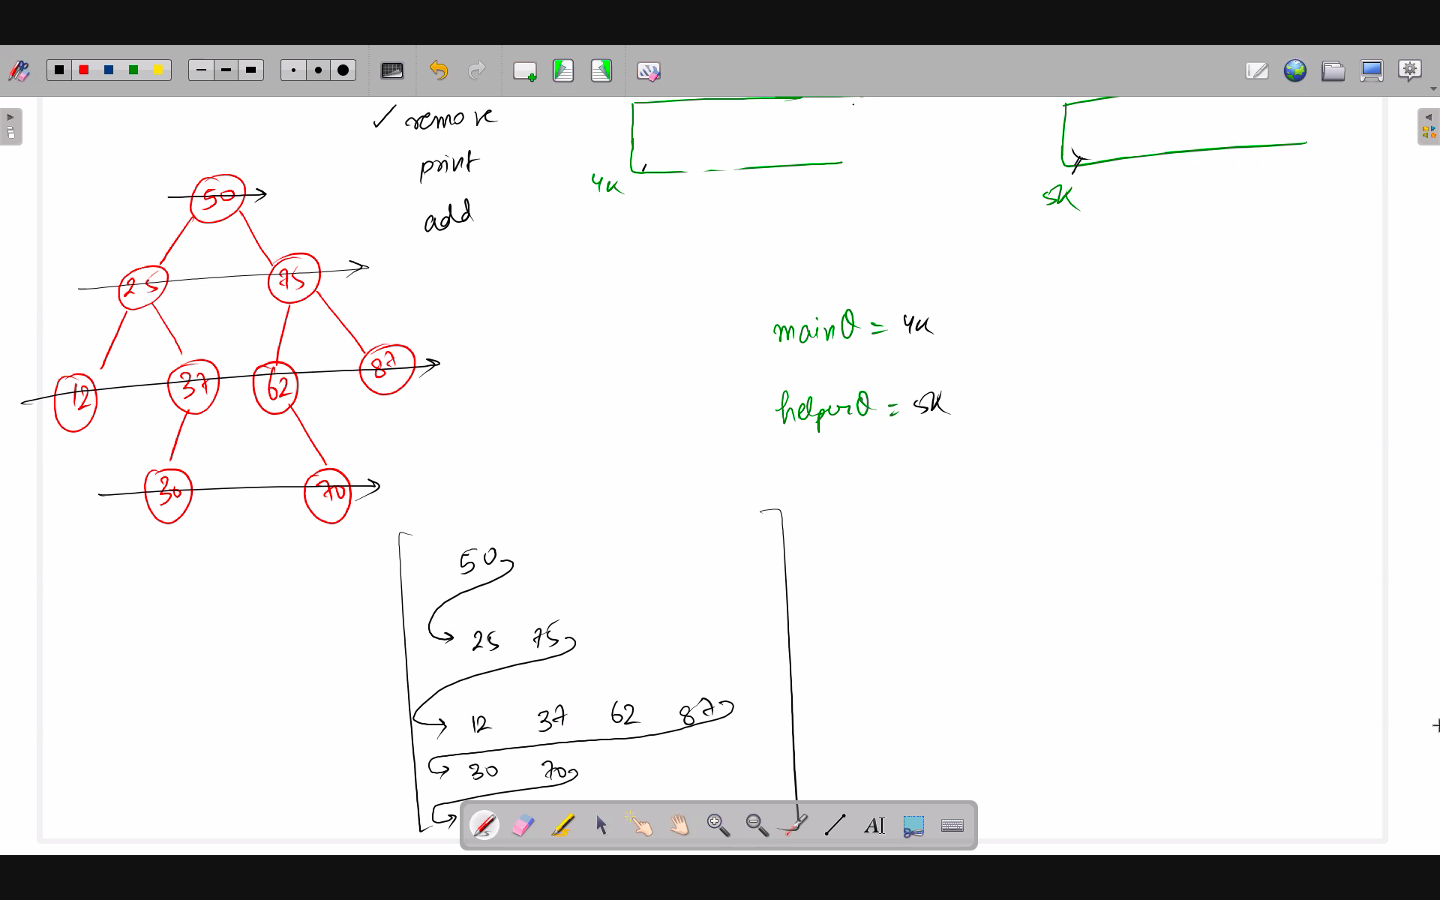 ✓ remove
print
add
4K
5K
50
25 75
12 37 62 87
30 70
mainQ = 4K
helperQ = 5K
50
25 75
12 37 62 87
30 70
AI